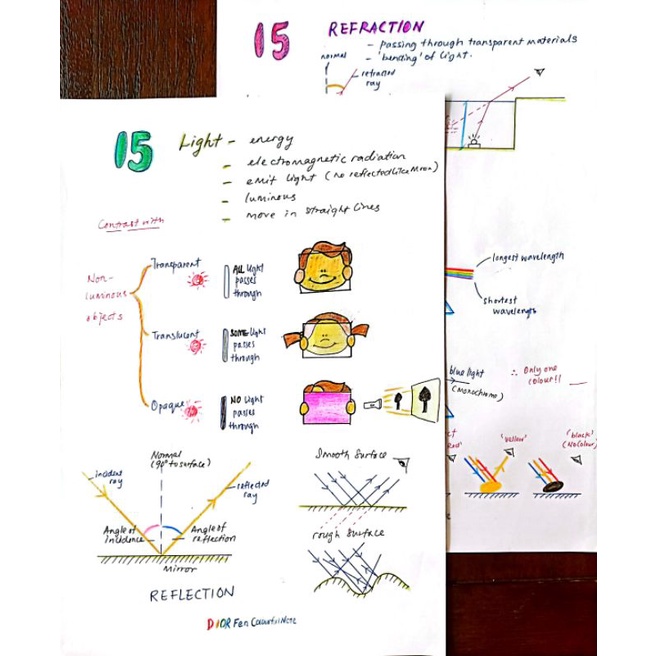 15
REFRACTION
- passing through transparent materials
- 'bending' of light.
normal
refracted
ray
15
Light - energy
- electromagnetic radiation
- emit light (no reflected like Moon)
- luminous
- move in straight lines
Contrast with
Non-
luminous
objects
Transparent
ALL light
passes
through
Translucent
SOME light
passes
through
Opaque
NO light
passes
through
longest wavelength
shortest
wavelength
blue light
(monochrome)
∴ Only one
colour!!
'yellow'
'black'
(No colour)
Normal
(90° to surface)
incident
ray
reflected
ray
Angle of
incidence
Angle of
reflection
Mirror
REFLECTION
Smooth Surface
rough Surface
DIOR Fen Colourful Note